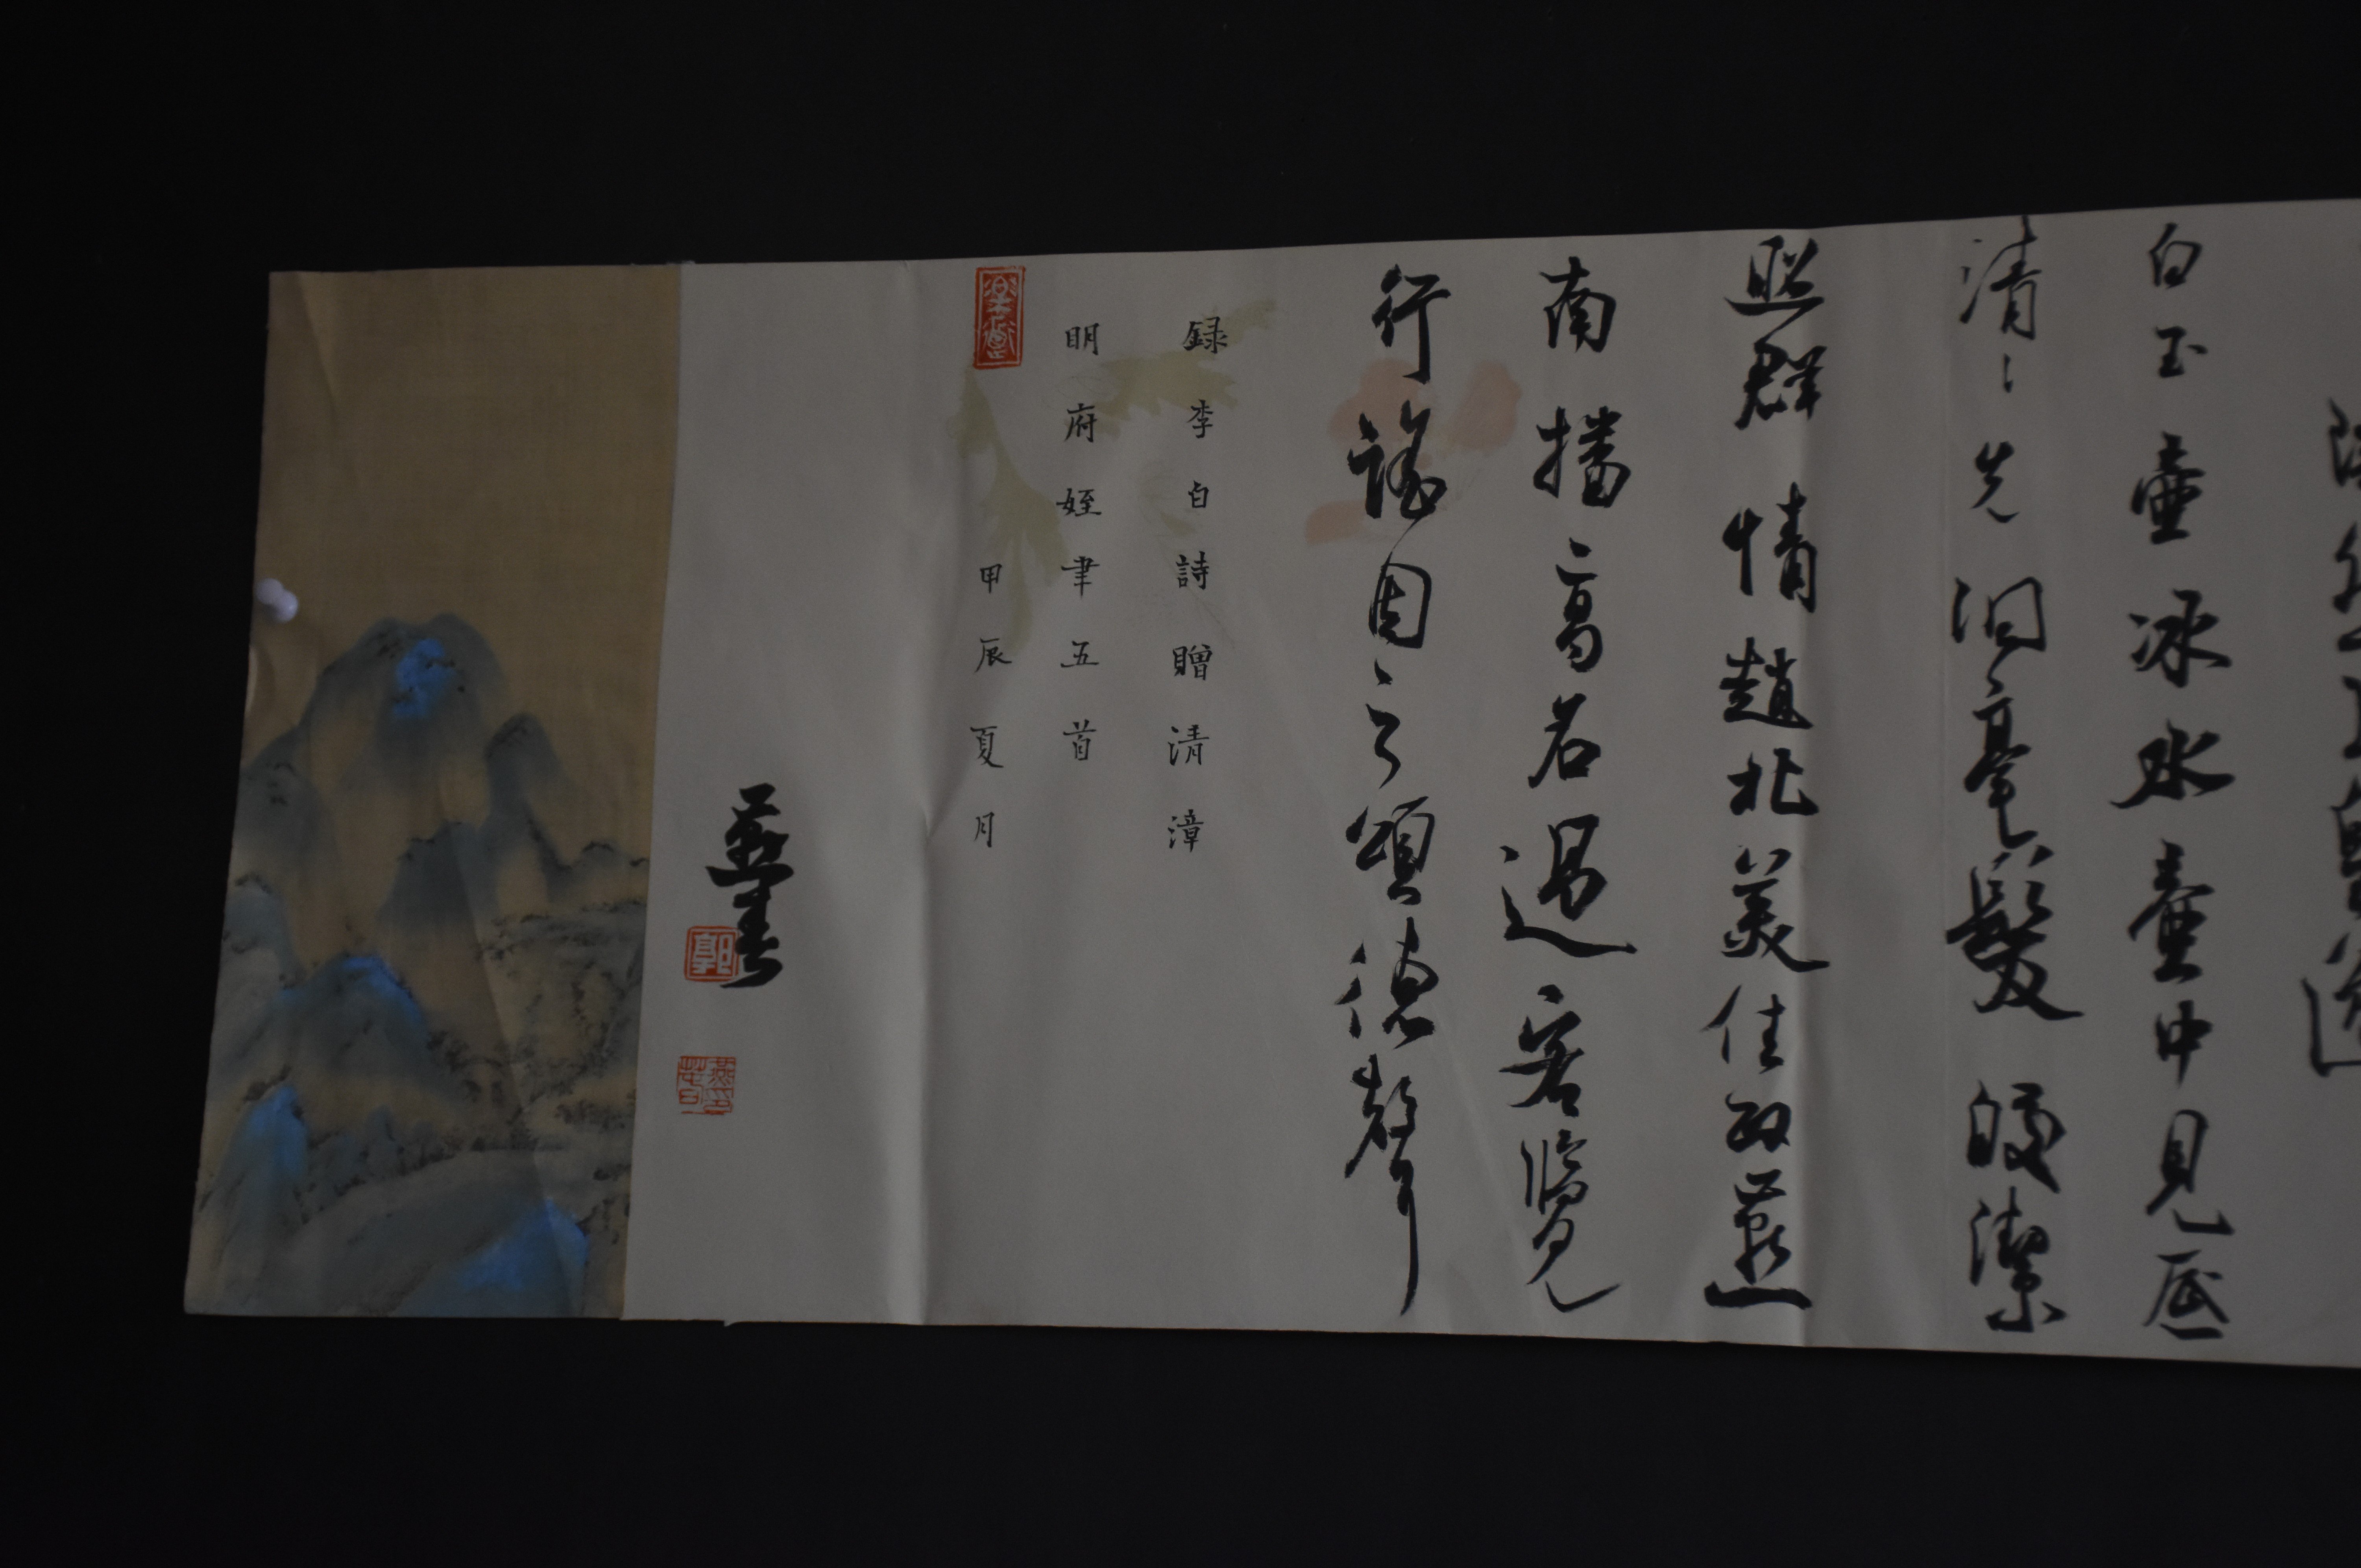 白玉壺冰水壺中見底
清〻光洞毫髮皎潔
照群情趙北美佳政燕
南播高名過客覽
行謠因之頌德聲
録李白詩贈清漳
明府姪聿五首
甲辰夏月
郭